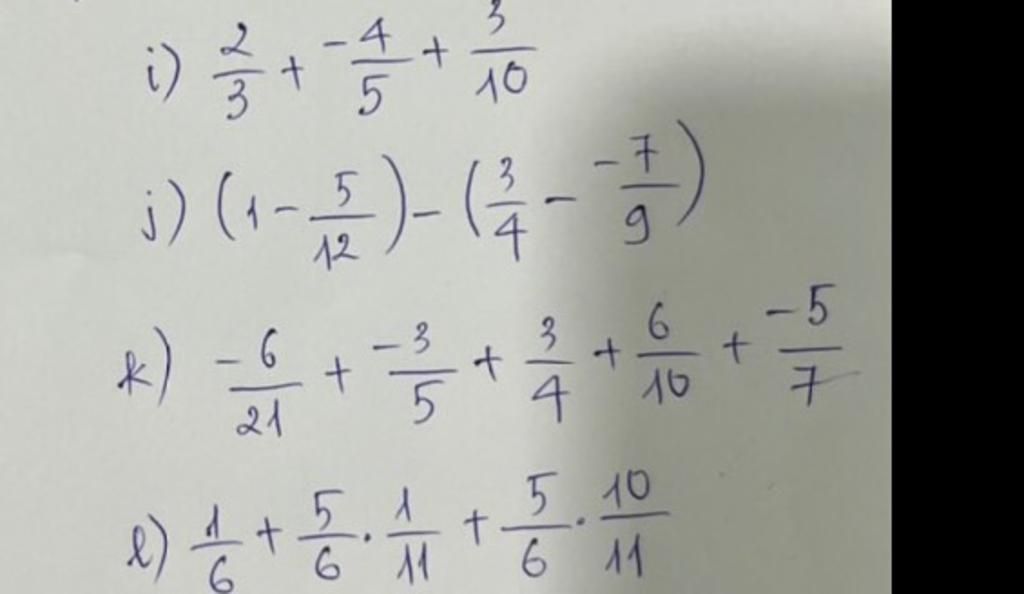 i) 2/3 + -4/5 + 3/10
j) (1 - 5/12) - (3/4 - -7/9)
k) -6/21 + -3/5 + 3/4 + 6/10 + -5/7
l) 1/6 + 5/6 . 1/11 + 5/6 . 10/11